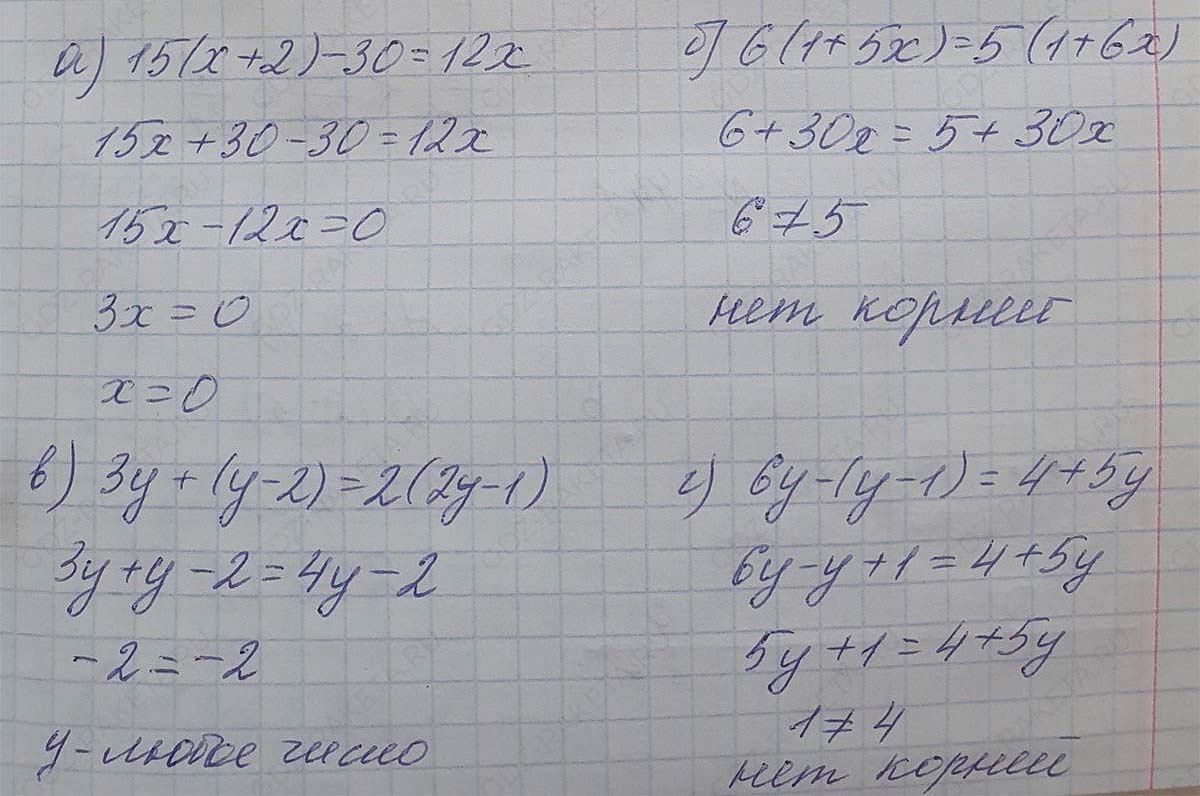 а) 15(x+2)-30=12x
15x+30-30=12x
15x-12x=0
3x=0
x=0
б) 6(1+5x)=5(1+6x)
6+30x=5+30x
6≠5
нет корний
в) 3y+(y-2)=2(2y-1)
3y+y-2=4y-2
-2=-2
y-любое число
г) 6y-(y-1)=4+5y
6y-y+1=4+5y
5y+1=4+5y
1≠4
нет корний
GDZ-RAKETA.RU